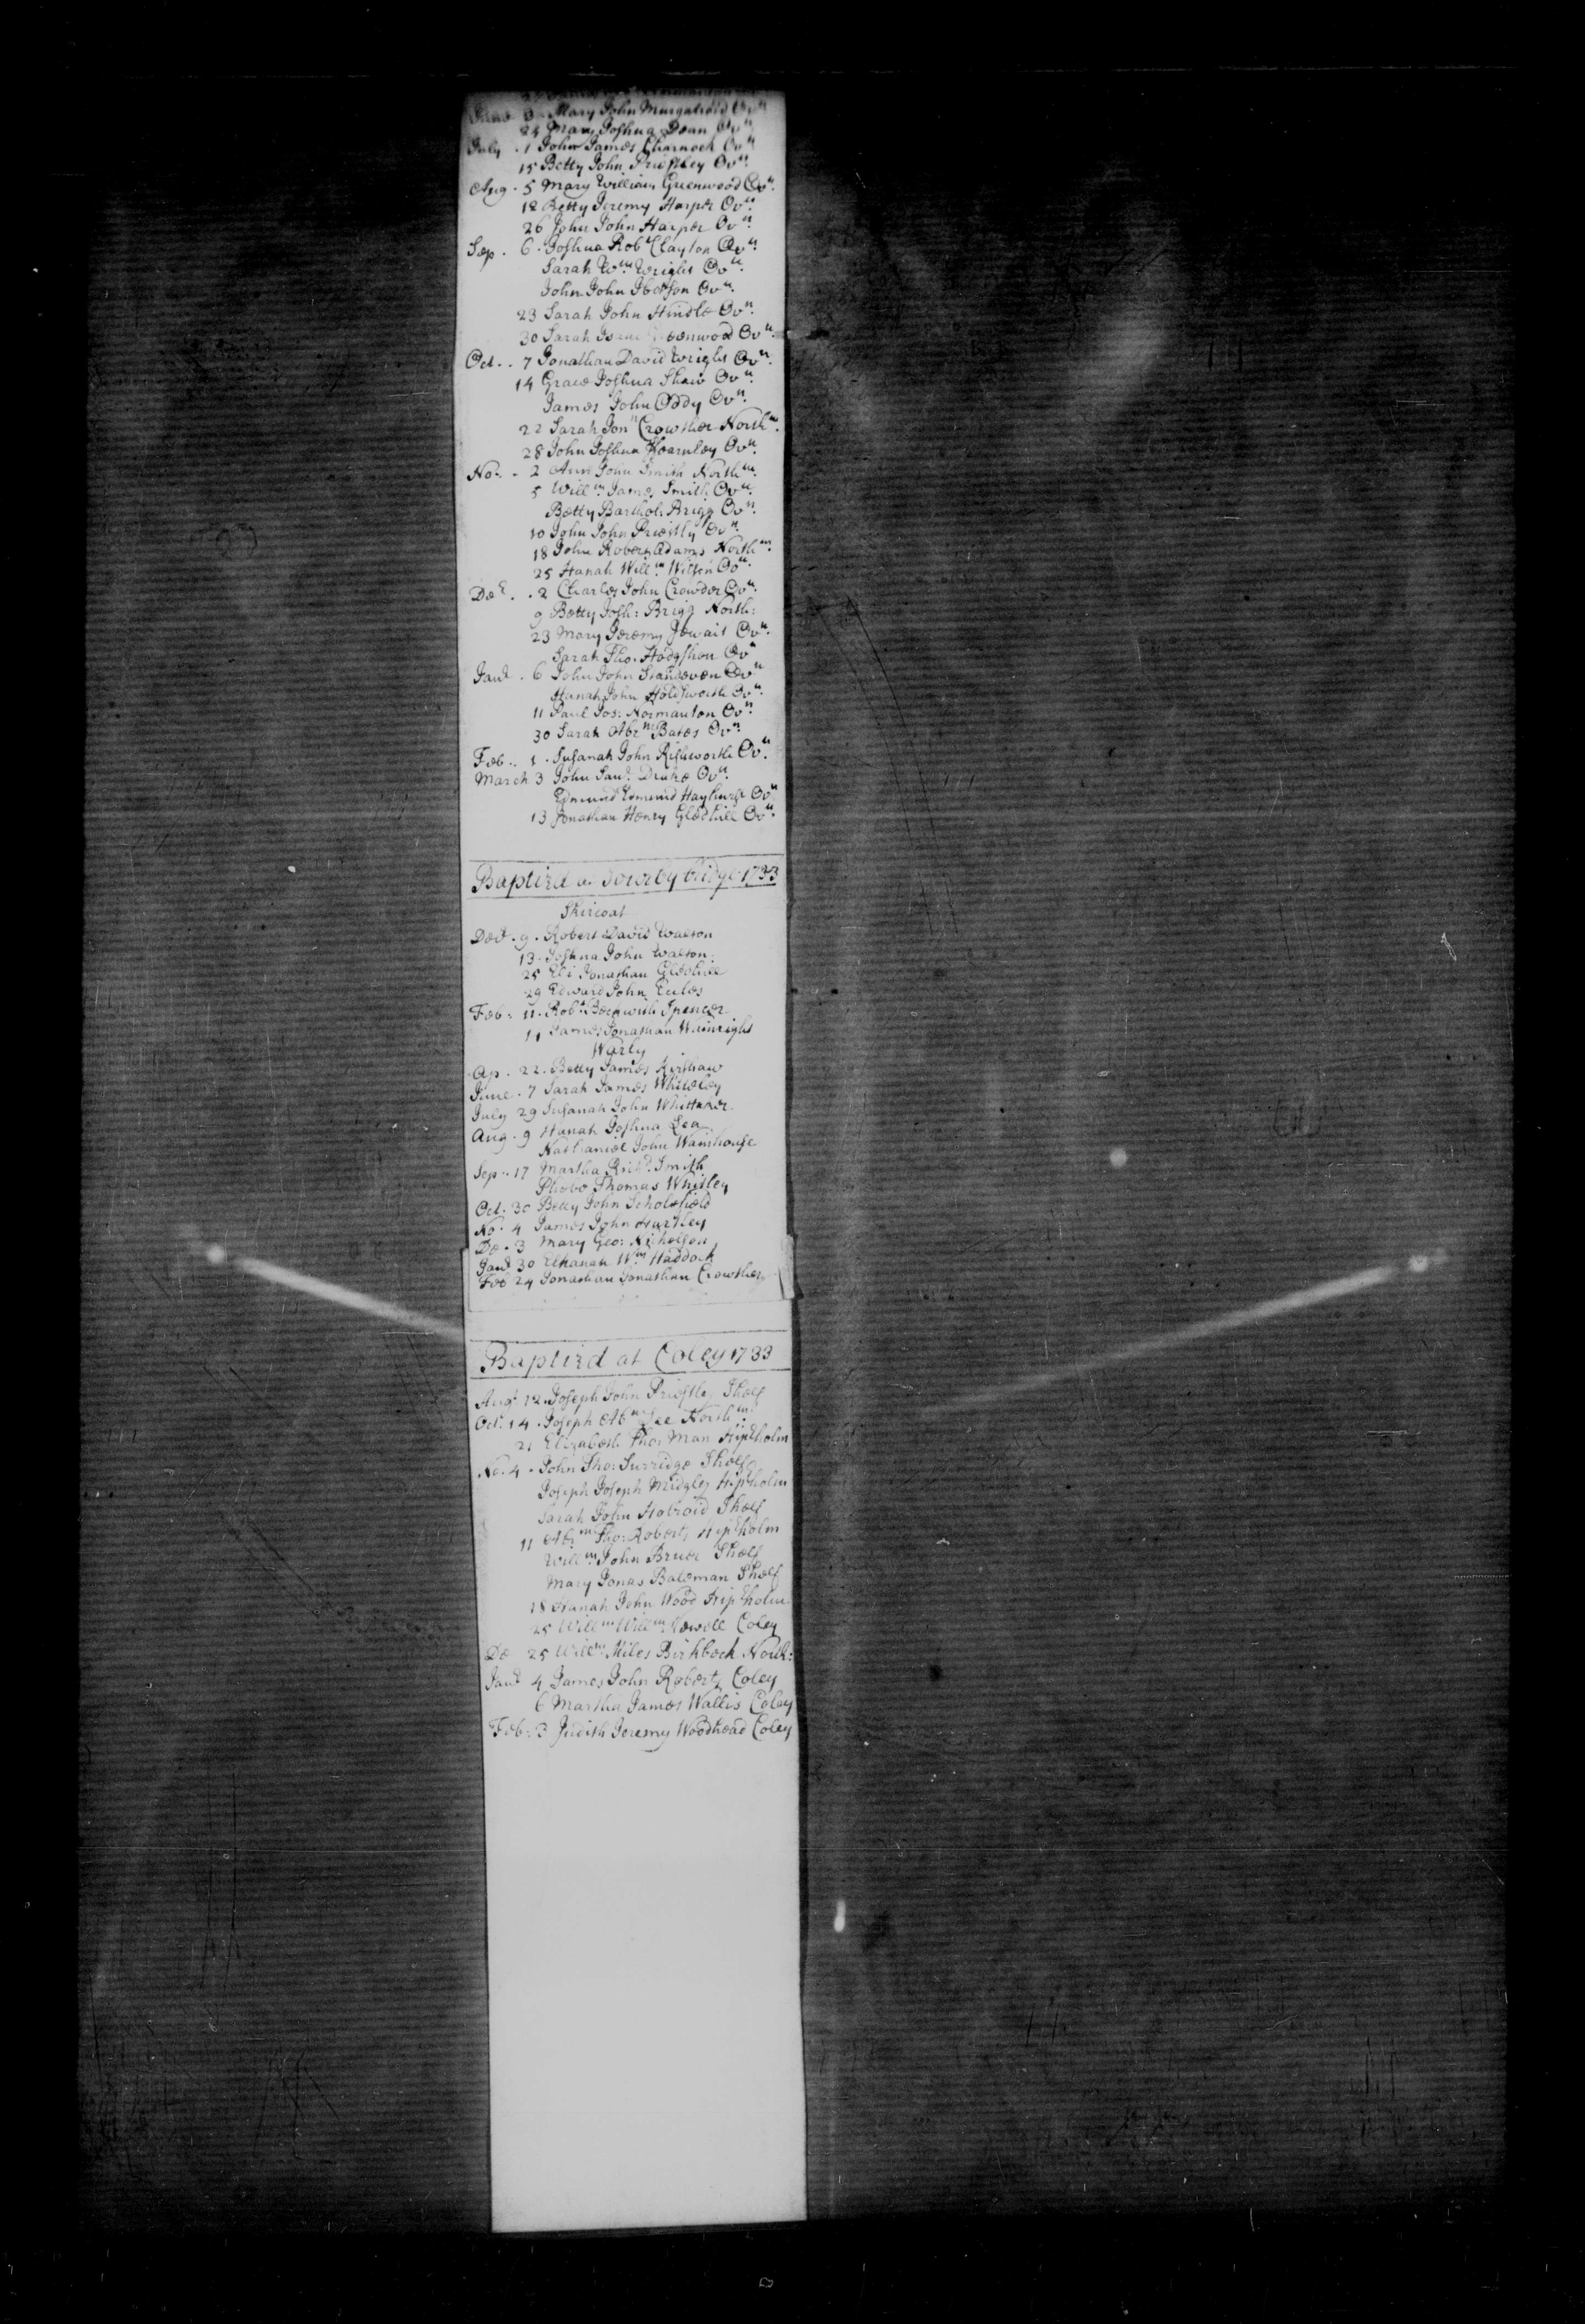 June 3 Mary John Murgatroid Ovn
24 Mary Joshua Dean Ovn
July . 1 John James Charnock Ovn
15 Betty John Priestley Ovn.
Aug . 5 Mary William Greenwood Ovn.
12 Betty Jeremy Harper Ovn.
26 John John Harper Ovn.
Sep . 6 . Joshua Robt Clayton Ovn.
Sarah Wm. Wright Ovn.
John John Ibotson Ovn.
23 Sarah John Hindle Ovn.
30 Sarah Isaac Greenwood Ovn.
Oct . . 7 Jonathan David Wright Ovn.
14 Grace Joshua Shaw Ovn.
James John Oddy Ovn.
22 Sarah Jonn Crowther Northm.
28 John Joshua Thearnley Ovn.
No. . 2 Ann John Smith Northm.
5 Willm. James Smith Ovn.
Betty Barthol: Brigg Ovn.
10 John John Priestly Ovn.
18 John Robert Adams Northm.
25 Hanah Willm. Wilson Ovn.
Dec . . 2 Charles John Crowder Ovn.
9 Betty Josh: Brigg North:
23 Mary Jeremy Jewait Ovn.
Sarah Tho. Hodgshon Ovn
Jany . 6 John John Standeven Ovn
Hanah John Holdsworth Ovn.
11 Paul Jos: Normanton Ovn.
30 Sarah Abrm Bates Ovn.
Feb . . 1 . Susanah John Rishworth Ovn.
March 3 John Saml. Drake Ovn.
Edmund Edmund Hayhurst Ovn
13 Jonathan Henry Gledhill Ovn.
Baptizd at Sowrby bridge 1733
Skircoat
Dect . 9 . Robert David Walton
13 . Joshua John Walton
25 Eli Jonathan Gledhill
29 Edward John Eccles
Feb : 11 . Robt Beckwith Spencer
11 James Jonathan Wainright
Warly
Ap . 22 . Betty James Kirshaw
June . 7 Sarah James Whiteley
July 29 Susanah John Whittaker
Aug . 9 Hanah Joshua Lea
Nathaniel John Wainhouse
Sep . . 17 Martha Richd. Smith
Phebe Thomas Whitley
Oct: 30 Betty John Scholefield
No . 4 James John Hartley
De . 3 Mary Geo: Nicholson
Jany 30 Elkanah Wm Haddock
Feb 24 Jonathan Jonathan Crowther
Baptizd at Coley 1733
Augt 12 . Joseph John Priestley Shelf
Oct. 14 . Joseph Abm Lee Northm.
21 Elizabeth Tho: Man Hipeholm
No. 4 . John Tho: Surridge Shelf
Joseph Joseph Midgley Hipeholm
Sarah John Holroid Shelf
11 Abm Tho: Roberts Hipeholm
Willm. John Bruer Shelf
Mary Jonas Bateman Shelf
18 Hanah John Wood Hipeholm
25 Willm Willm Newell Coley
De 25 Willm. Miles Birkbeck North:
Jany 4 James John Roberts Coley
6 Martha James Wallis Coley
Feb: 3 Judith Jeremy Woodhead Coley